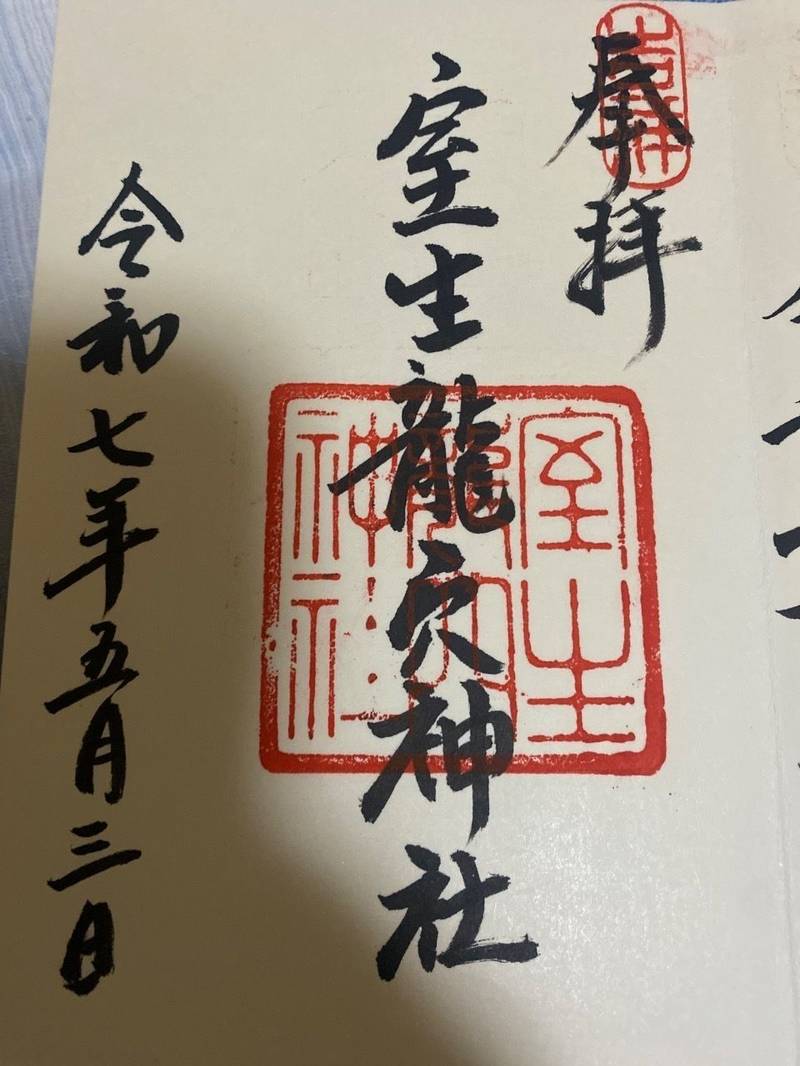 奉拝
吉祥
室生龍穴神社
室生
龍穴
神社
令和七年五月三日